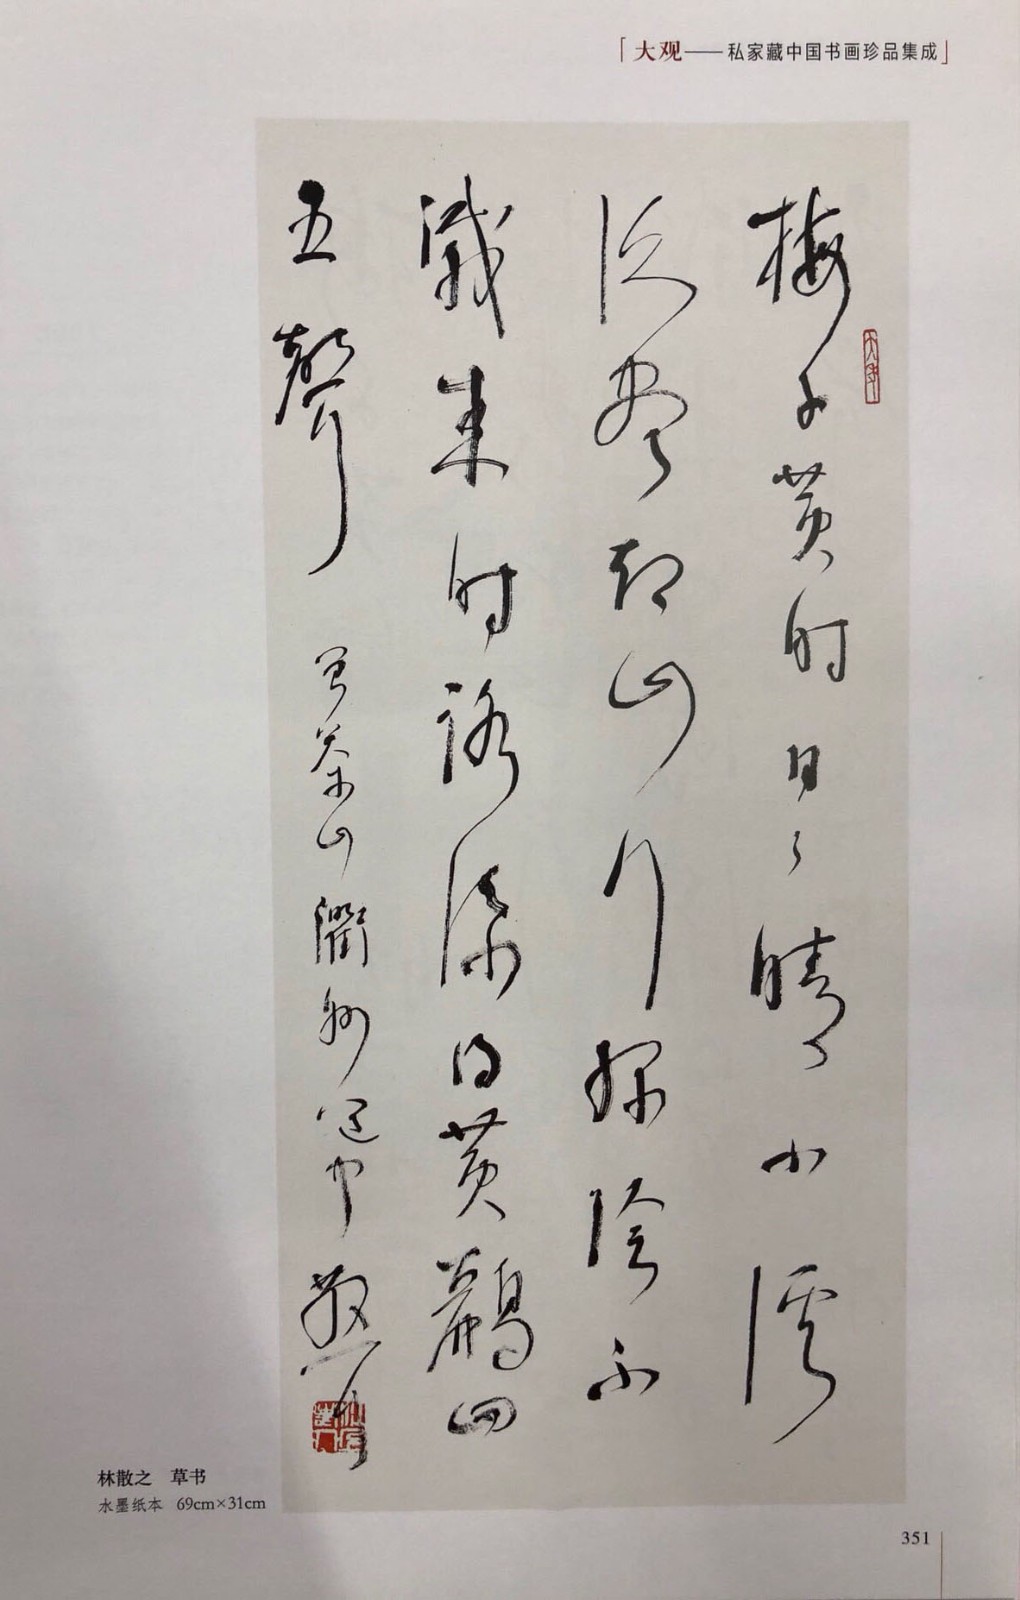 「大观——私家藏中国书画珍品集成」
梅子黄时日々晴々小溪
泛尽却山行绿阴不
减来时路添得黄鹂四
五声
曾茶山衢州道中 散耳
林散之 草书
水墨纸本 69cm×31cm
351